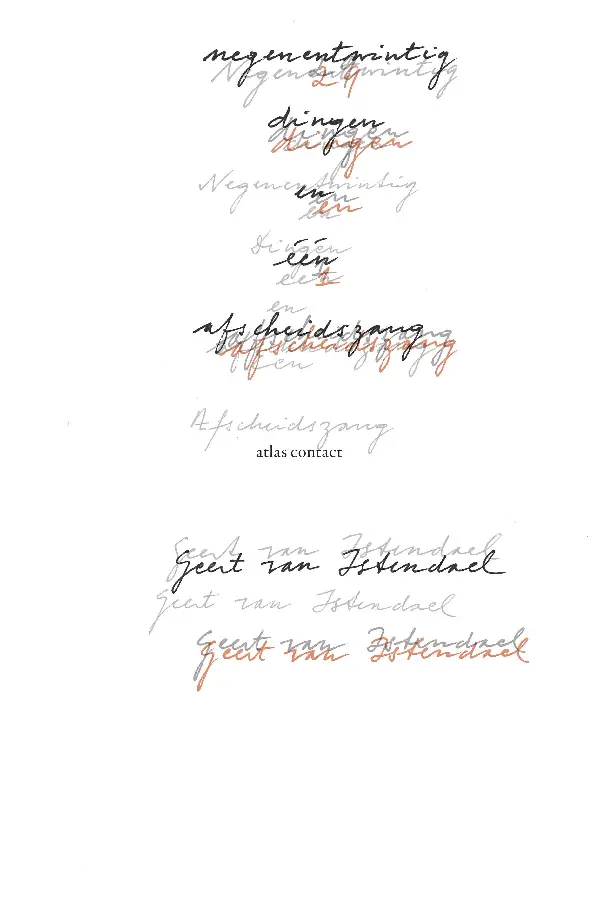 negenentwintig
Negenentwintig
29
dingen
dingen
dingen
Negenentwintig
en
en
en
Dingen
één
een
1
en
afscheidszang
afscheidszang
afscheidszang
Afscheidszang
atlas contact
Geert van Istendael
Geert van Istendael
Geert van Istendael
Geert van Istendael
Geert van Istendael